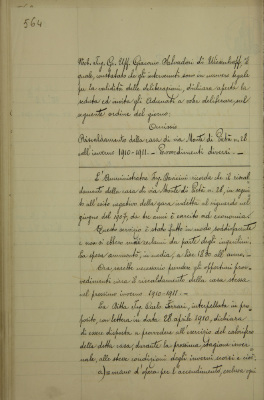 564
Nob. Sig. Gr. Uff. Giacomo Salvadori di Wiesenhoff il
quale, constatato che gli intervenuti sono in numero legale
per la validità delle deliberazioni, dichiara aperta la
seduta ed invita gli Adunati a voler deliberare sul
seguente ordine del giorno:
Omissis
Riscaldamento della casa di via Monte di Pietà n. 28
nell'inverno 1910-1911. - Provvedimenti diversi. -
L'Amministratore Sig. ricorda che il riscal-
damento della casa di via Monte di Pietà n. 28, in segui-
to all'esito negativo della gara, indetta al riguardo nel
giugno del 1907, da tre anni è esercito ad economia.
Questo servizio è stato fatto in modo soddisfacente
e non si ebbero mai reclami da parte degli inquilini;
la spesa ammontò, in media, a lire all'anno. -
Ora occorre necessario prendere gli opportuni prov-
vedimenti circa il riscaldamento della casa stessa
nel prossimo inverno 1910-1911. -
La Ditta Sig. Carlo interpellata in pro-
posito, con lettera in data 28 aprile 1910, dichiara
di essere disposta a provvedere all'esercizio del calorifero
della detta casa, durante la prossima stagione inver-
nale, alle stesse condizioni degli inverni scorsi e cioè:
a) mano d'opera per l'accendimento, sorveg